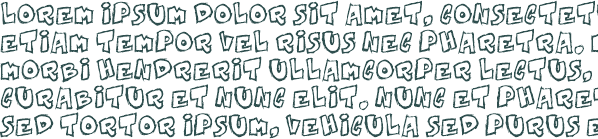 LOREM IPSUM DOLOR SIT AMET, CONSECTET
ETIAM TEMPOR VEL RISUS NEC PHARETRA.
MORBI HENDRERIT ULLAMCORPER LECTUS,
CURABITUR ET NUNC ELIT. NUNC ET PHARE
SED TORTOR IPSUM, VEHICULA SED PURUS